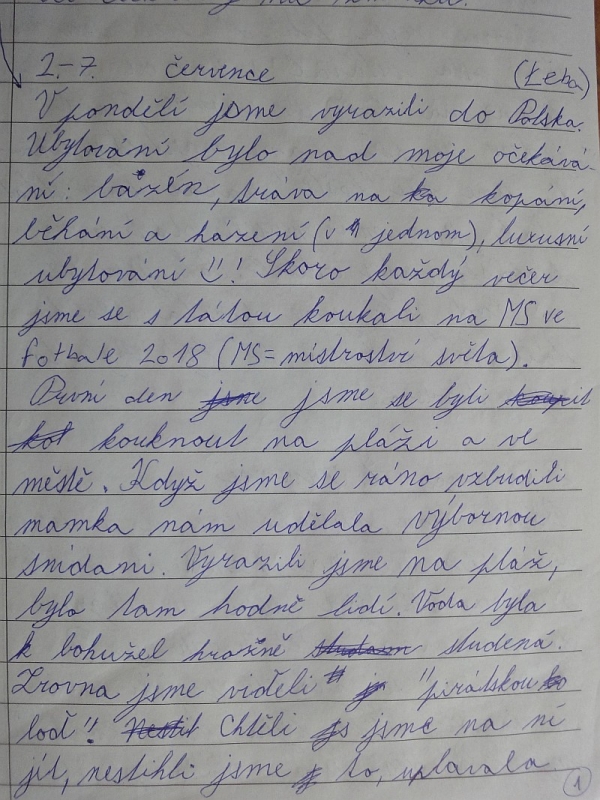 2.-7. července (Łeba)
V pondělí jsme vyrazili do Polska.
Ubytování bylo nad moje očekává-
ní: bazén, tráva na kopání,
běhání a házení (v jednom), luxusní
ubytování ! Skoro každý večer
jsme se s tátou koukali na MS ve
fotbale 2018 (MS=mistroství světa).
První den jsme jsme se byli
kouknout na pláži a ve
městě. Když jsme se ráno vzbudili
mamka nám udělala výbornou
snídani. Vyrazili jsme na pláž,
bylo tam hodně lidí. Voda byla
bohužel hrozně studená.
Zrovna jsme viděli "pirátskou
loď"! Chtěli jsme na ní
jít, nestihli jsme to, uplavala
1